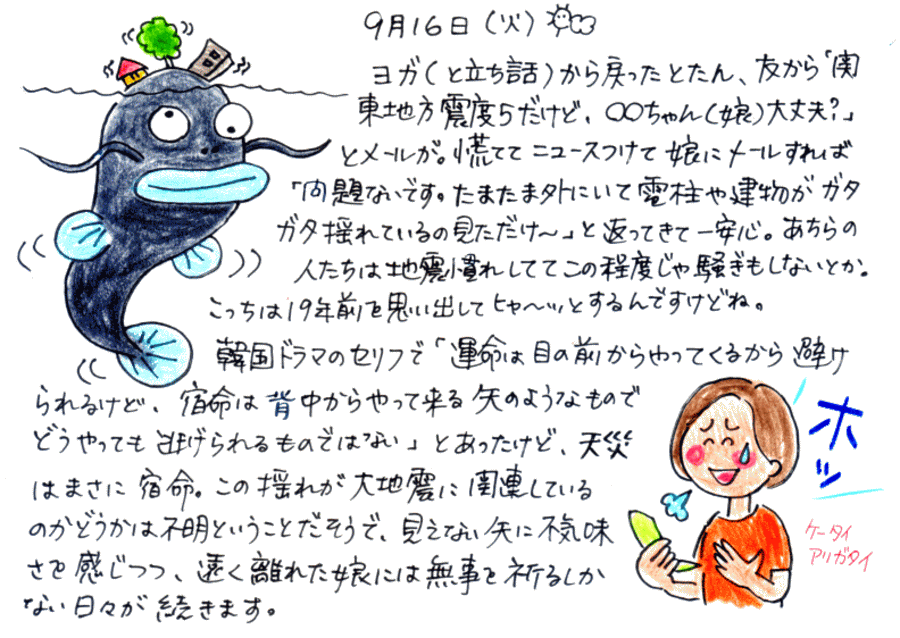 9月16日(火)
ヨガ(と立ち話)から戻ったとたん、友から「関
東地方震度5だけど、○○ちゃん(娘)大丈夫?」
とメールが。慌ててニュースつけて娘にメールすれば
「問題ないです。たまたま外にいて電柱や建物がガタ
ガタ揺れているの見ただけ〜」と返ってきて一安心。あちらの
人たちは地震慣れしててこの程度じゃ騒ぎもしないとか。
こっちは19年前を思い出してヒャ〜ッとするんですけどね。
韓国ドラマのセリフで「運命は目の前からやってくるから避け
られるけど、宿命は背中からやって来る矢のようなもので
どうやっても逃げられるものではない」とあったけど、天災
はまさに宿命。この揺れが大地震に関連している
のかどうかは不明ということだそうで、見えない矢に不気味
さを感じつつ、遠く離れた娘には無事を祈るしか
ない日々が続きます。
ホッ
ケータイ
アリガタイ